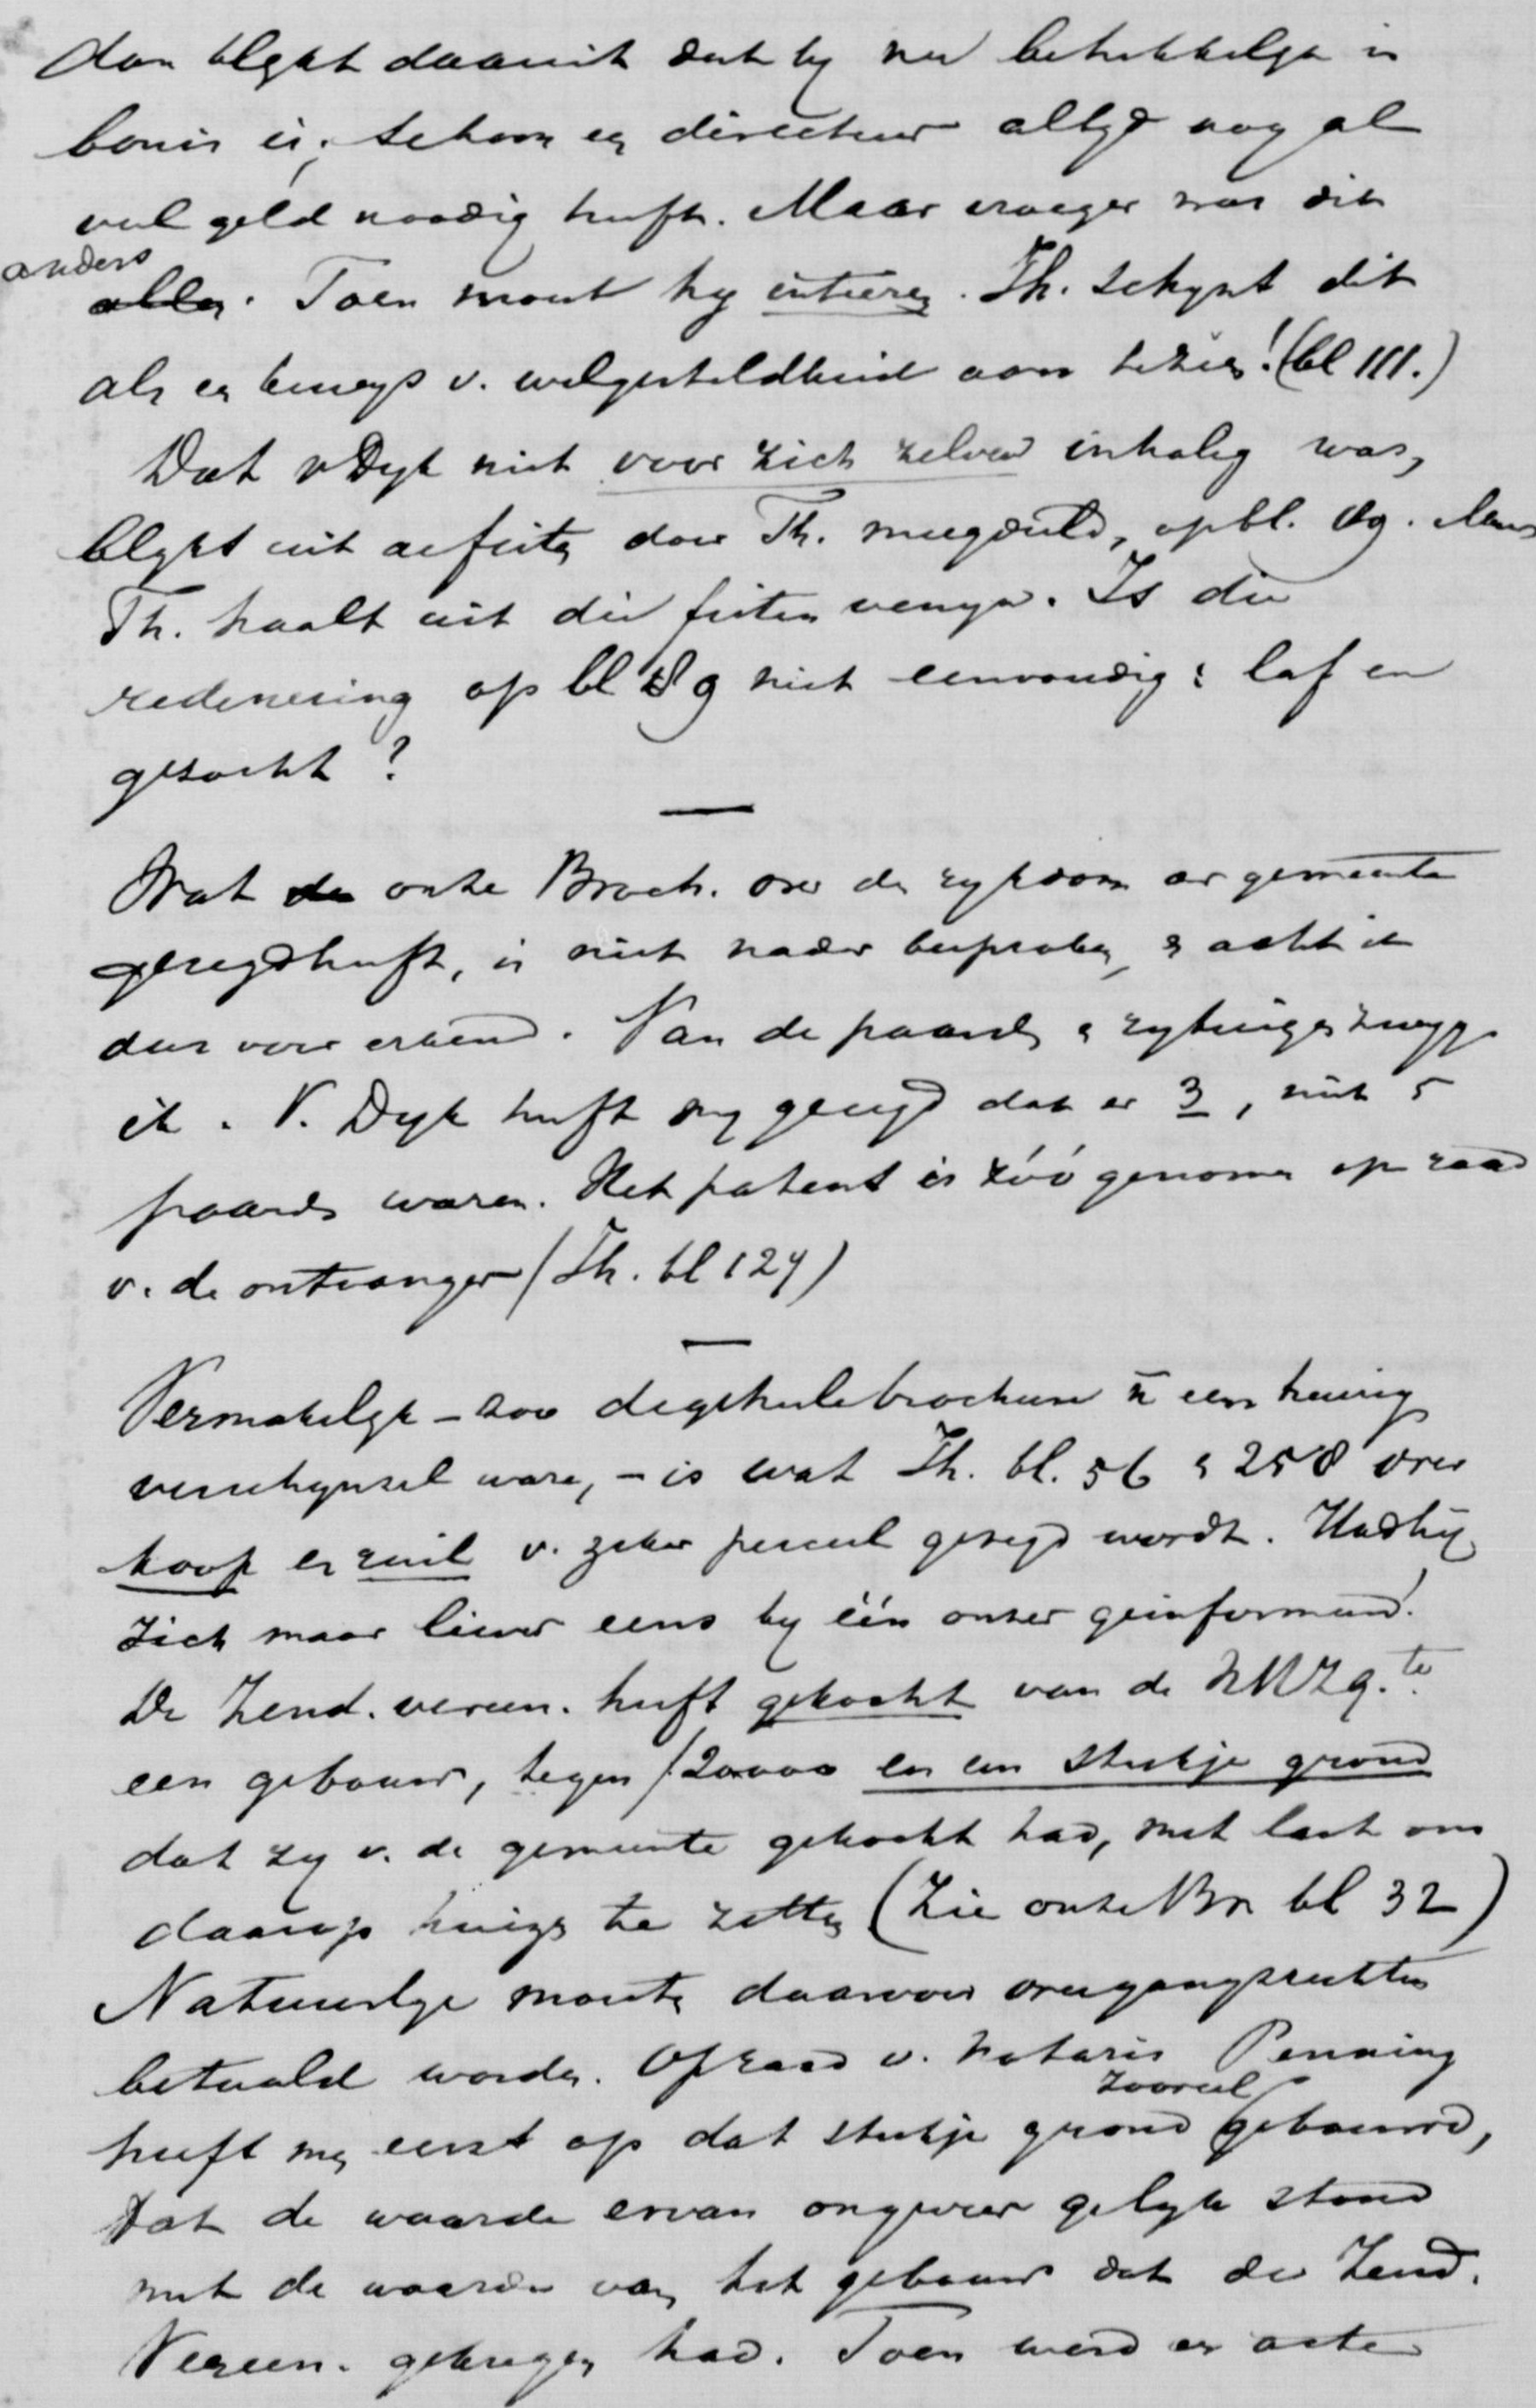 dan blykt daaruit dat hy nu betrekkelyk in
bonis is; schoon een directeur altyd nog al
veel geld noodig heeft. Maar vroeger was dit
anders
alles. Toen moest hy interen. Th. schynt dit
als een bewys v. welgesteldheid aan te zien! (bl 111.)
Dat v Dyk niet voor zich zelven inhalig was,
blykt uit de feiten door Th. meegedeeld, op bl. 89. Maar
Th. haalt uit die feiten venyn. Is die
redeneering op bl 89 niet eenvoudig: laf en
gezocht?
Wat onze Broch. over den rykdom der gemeente
gezegd heeft, is niet nader besproken, & acht ik
dus voor erkend. Van de paarden & rytuigen zwyg
ik. V. Dyk heeft my gezegd dat er 3, niet 5
paarden waren. Het patent is zóó genomen op raad
v. de ontvanger (Th. bl 124)
Vermakelyk – zoo de geheele brochure n een treurig
verschynsel ware, – is wat Th. bl. 56 & 258 over
koop en ruil v. zeker perceel gezegd wordt. Had hy
zich maar liever eens by één onzer geinformeerd!
De Zend. vereen. heeft gekocht van de NMZg.te
een gebouw, tegen ƒ20000 en een stukje grond
dat zy v. de gemeente gekocht had, met last om
daarop huizen te zetten (Zie onze Br bl 32)
Natuurlyk moesten daarvoor overgangsrechten
betaald worden. Op raad v. notaris Penning
zooveel
heeft men eerst op dat stukje grond gebouwd,
dat de waarde ervan ongeveer gelyk stond
met de waarde van het gebouw dat de Zend.
Vereen. gekregen had. Toen werd er acte